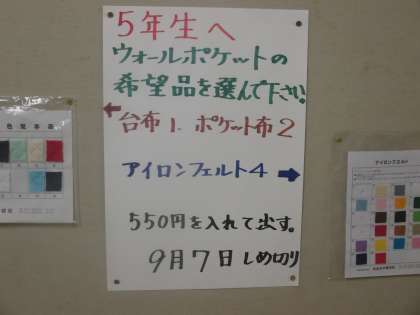 5年生へ
ウォールポケットの
希望品を選んで下さい
台布1. ポケット布2
アイロンフェルト4
550円を入れて出す。
9月7日しめ切り
色見本表
アイロンフェルト